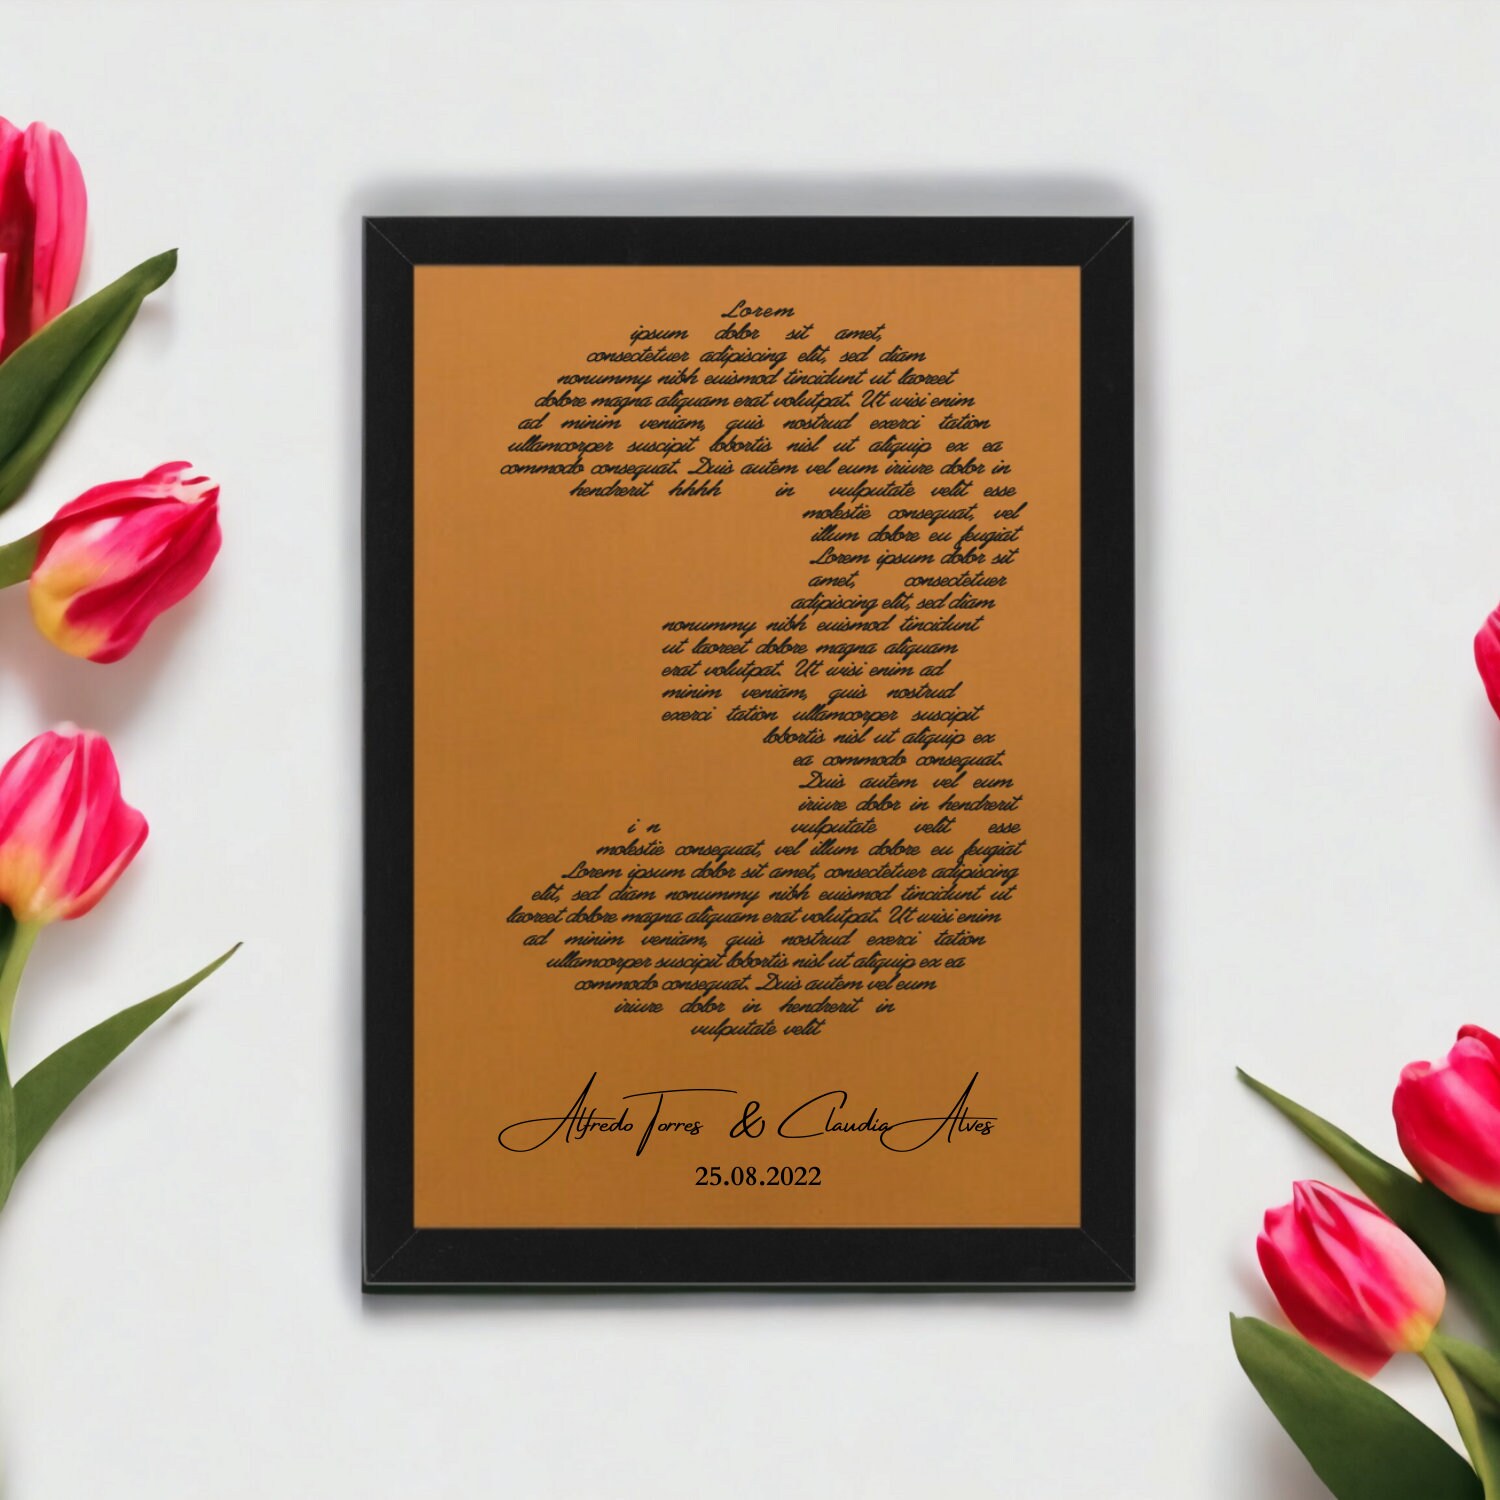 Lorem
ipsum dolor sit amet,
consectetuer adipiscing elit, sed diam
nonummy nibh euismod tincidunt ut laoreet
dolore magna aliquam erat volutpat. Ut wisi enim
ad minim veniam, quis nostrud exerci tation
ullamcorper suscipit lobortis nisl ut aliquip ex ea
commodo consequat. Duis autem vel eum iriure dolor in
hendrerit hhhh in vulputate velit esse
molestie consequat, vel
illum dolore eu feugiat
Lorem ipsum dolor sit
amet, consectetuer
adipiscing elit, sed diam
nonummy nibh euismod tincidunt
ut laoreet dolore magna aliquam
erat volutpat. Ut wisi enim ad
minim veniam, quis nostrud
exerci tation ullamcorper suscipit
lobortis nisl ut aliquip ex
ea commodo consequat.
Duis autem vel eum
iriure dolor in hendrerit
in vulputate velit esse
molestie consequat, vel illum dolore eu feugiat
Lorem ipsum dolor sit amet, consectetuer adipiscing
elit, sed diam nonummy nibh euismod tincidunt ut
laoreet dolore magna aliquam erat volutpat. Ut wisi enim
ad minim veniam, quis nostrud exerci tation
ullamcorper suscipit lobortis nisl ut aliquip ex ea
commodo consequat. Duis autem vel eum
iriure dolor in hendrerit in
vulputate velit
Alfredo Torres & Claudia Alves
25.08.2022